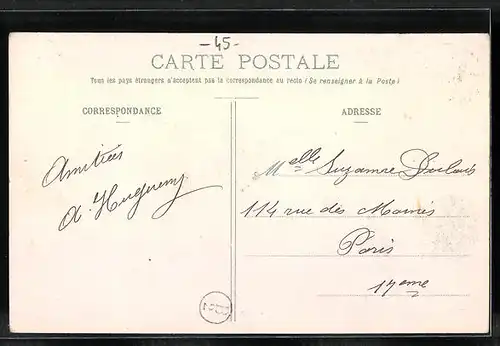 -45-
CARTE POSTALE
Tous les pays étrangers n'acceptent pas la correspondance au recto (Se renseigner à la Poste)
CORRESPONDANCE
ADRESSE
Amitiés
A. Huguenny
Melle Suzanne
114 rue des Moines
Paris
17eme